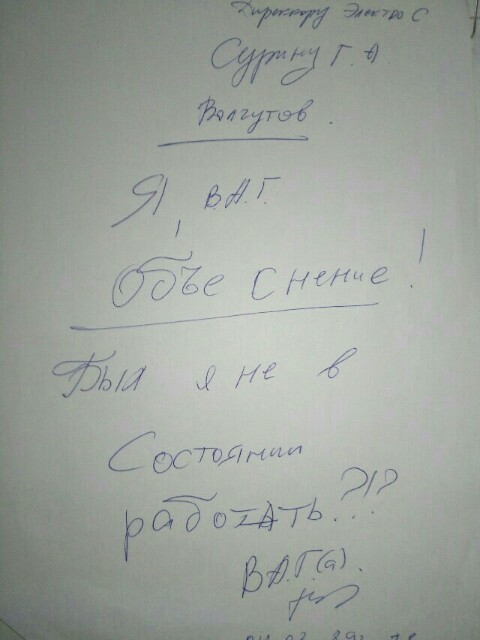 Директору Электро С
Сурину Г. А.
Валгутов.
Я, В.А.Г.
Объе снение!
Был я не в
Состоянии
работать.?!?
В.А.Г.(а).